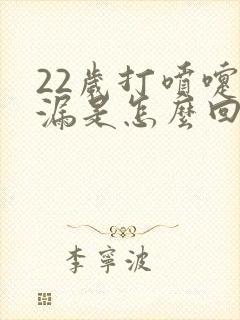 22歲打噴嚏
漏是怎麼回
李寧波